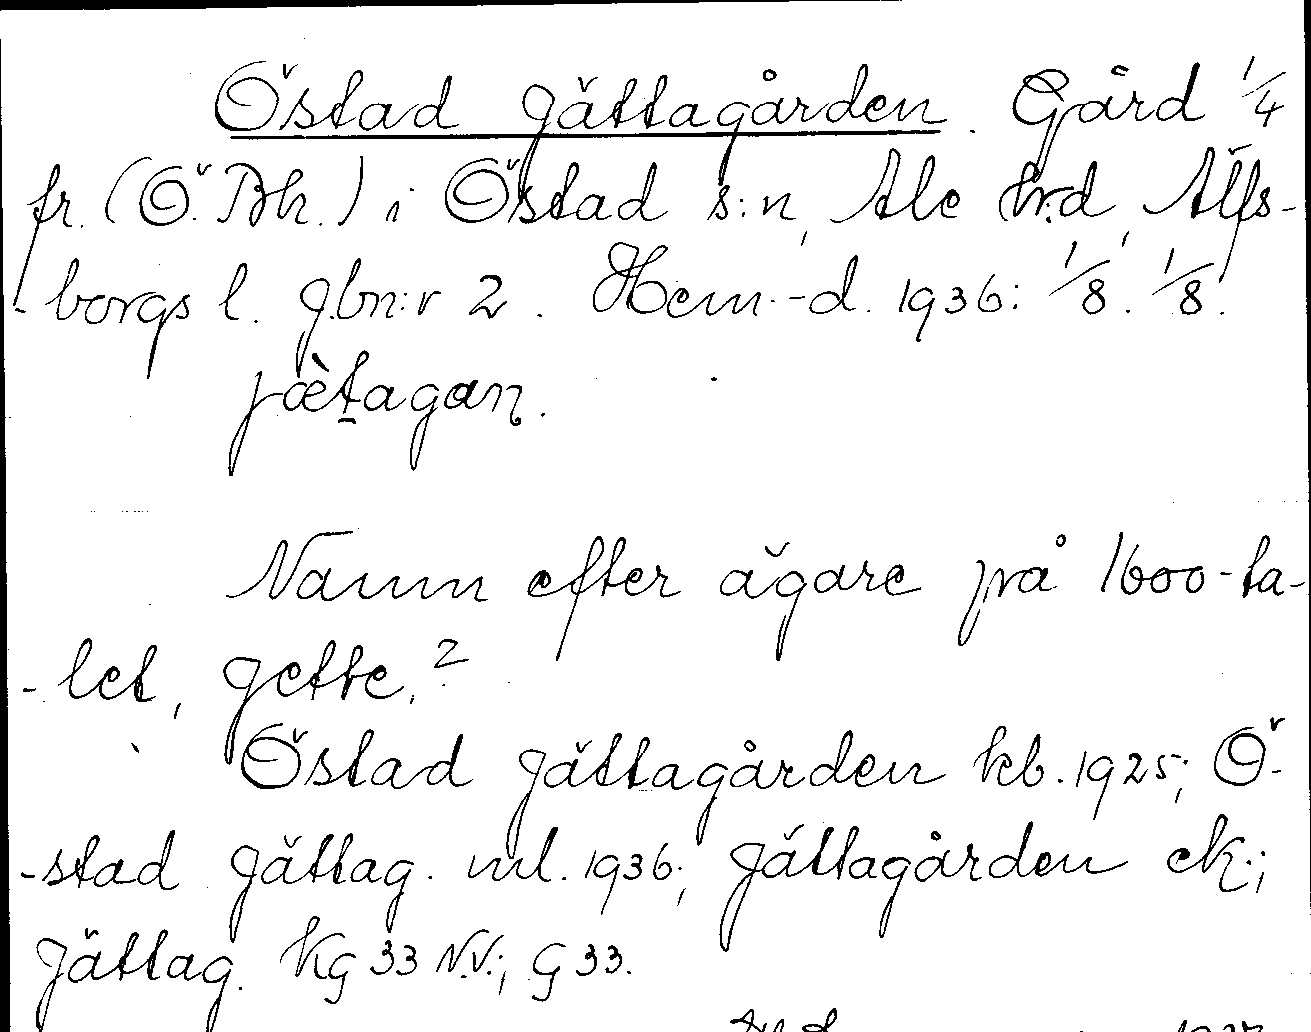 Östad Jättagården. Gård 1/4
fr. (Ö. Bh.) i Östad s:n, Ale hrd, Älfs-
-borgs l. Jbn:r 2. Hem.-d. 1936: 1/8. 1/8.
jæ̀t̠agan.
Namn efter ägare på 1600-ta-
-let, Jette.?
Östad Jättagården kb. 1925; Ö-
-stad Jättag. ml. 1936; Jättagården ek.;
Jättag. KG 33 N.V.; G 33.